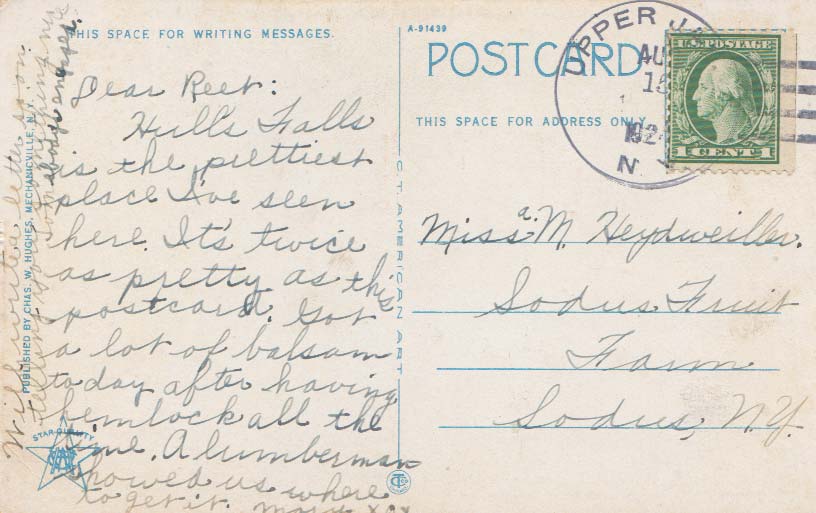 THIS SPACE FOR WRITING MESSAGES.
Dear Reet:
Hull's Falls
is the prettiest
place I've seen
here. It's twice
as pretty as this
postcard. Got
a lot of balsam
today after having
hemlock all the
time. A lumberman
showed us where
to get it. Mary xxx
Will write letter so on
PUBLISHED BY CHAS. W. HUGHES, MECHANICVILLE, N.Y.
STAR QUALITY
C T AMERICAN ART
A-91439
POST CARD
THIS SPACE FOR ADDRESS ONLY
UPPER
AU
15
192
N
U.S. POSTAGE
1 CENT 1
Miss a. M. Heydweiller.
Sodus Fruit
Farm
Sodus, N.Y.